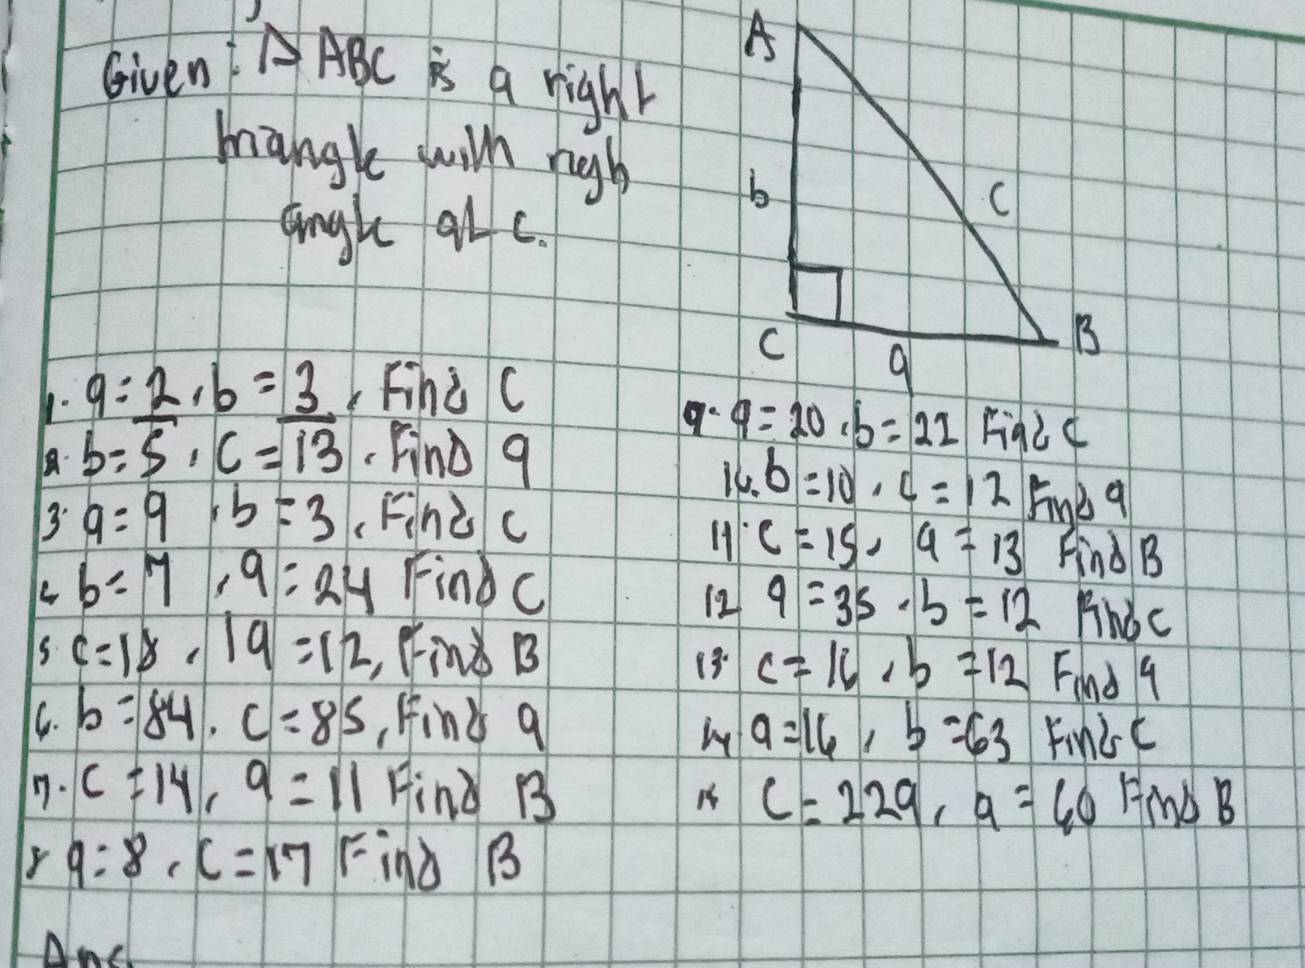 Given: △ ABC is a right
triangle with righ
angle at C.
A
b
c
C
a
B
1. a = 2, b = 3, Find C
2. b = 5, C = 13. Find a
3. a = 9, b = 3, Find C
4. b = 7, a = 24 Find C
5. C = 18, a = 12, Find B
6. b = 84. C = 85, Find a
7. C = 14, a = 11 Find B
8 a = 8, C = 17 Find B
9. a = 20, b = 21 Find C
10. b = 10, C = 12 Find a
11. C = 15, a = 13 Find B
12 a = 35, b = 12 Find C
13. C = 16, b = 12 Find a
14 a = 16, b = 63 Find C
15 C = 229, a = 60 Find B
Ans